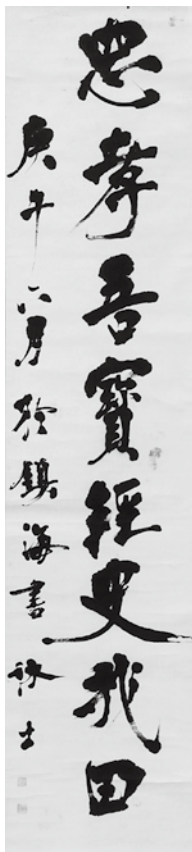 忠孝吾寶經史我田
庚午六月於鎮海書 詠士